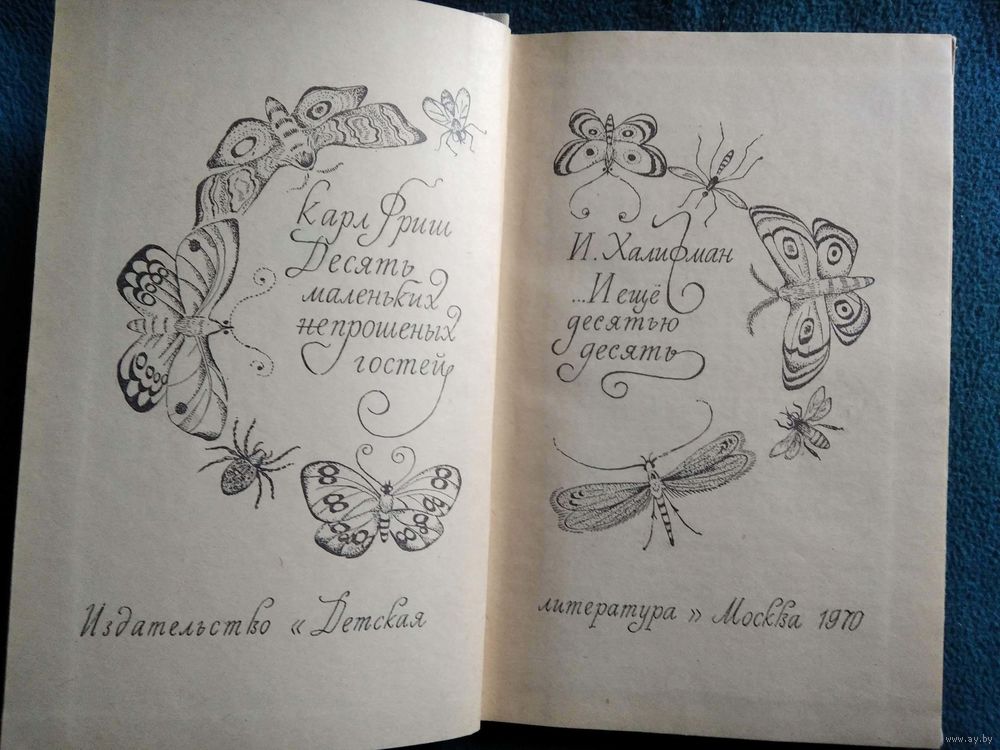 Карл Фриш
Десять
маленьких
непрошеных
гостей
И. Халифман
...И ещё
десятью
десять
Издательство « Детская
литература » Москва 1970
www.ay.by